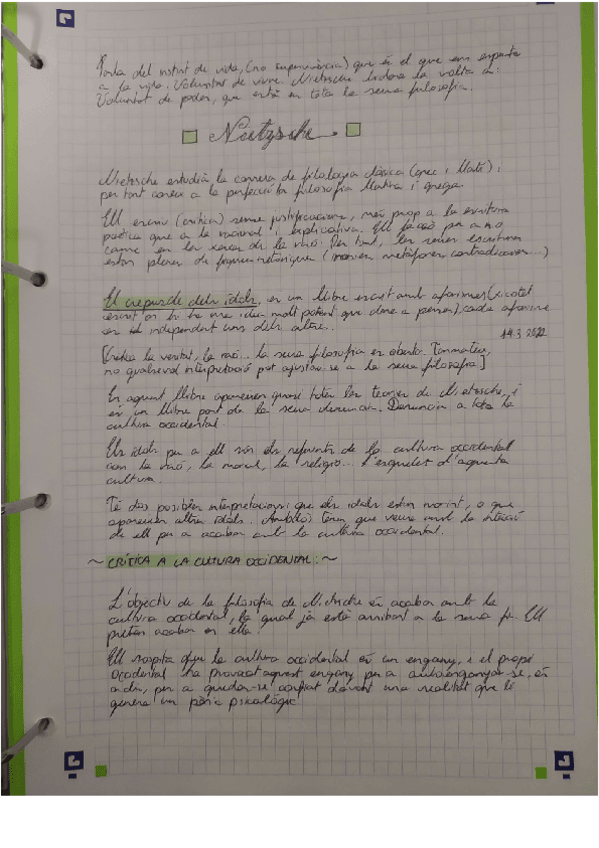 Parla del instint de vida, (no supervivència) que és el que ens empenta
a la vida. Voluntat de viure. Nietzsche li dona la volta a:
Voluntat de poder, que està en tota la seua filosofia.
Nietzsche.
Nietzsche estudià la carrera de filologia clàsica (grec i llatí) i
per tant coneix a la perfecció la filosofia llatina i grega.
Ell escriu (critica) sense justificacions, més prop a la escritura
poètica que a la racional i explicativa. Ell fa açò per a no
caure en les xarxes de la raó. Per tant, les seues escritures
estan plenes de figures retòriques (ironies, metàfores, contradiccions...)
El crepuscle dels ídols, es un llibre escrit amb aforismes (xicotet
escrit on hi ha una idea molt potent que dona a pensar), cada aforisme
es independent uns dels altres.
14.3.2022
[Critica la veritat, la raó... la seua filosofia es oberta. Tanmateix,
no qualsevol interpretació pot ajustar-se a la seua filosofia]
En aquest llibre apareixen quasi totes les teories de Nietzsche, i
és un llibre part de la seua denúncia. Denuncia a tota la
cultura occidental.
Els ídols per a ell són els referents de la cultura occidental
com la raó, la moral, la religió... l'esquelet d'aquesta
cultura.
Té dos possibles interpretacions: que els ídols estan morint, o que
apareixen altres ídols. Ambdós tenen que veure amb la intenció
de ell per a acabar amb la cultura occidental.
~ CRÍTICA A LA CULTURA OCCIDENTAL: ~
L'objectiu de la filosofia de Nietzsche és acabar amb la
cultura occidental, la qual ja està arribant a la seua fi. Ell
pretén acabar en ella.
Ell sospita que la cultura occidental és un engany, i el propi
occidental ha provocat aquest engany per a autoenganyar-se, és
a dir, per a quedar-se confiat davant una realitat que li
genera un pànic psicològic.